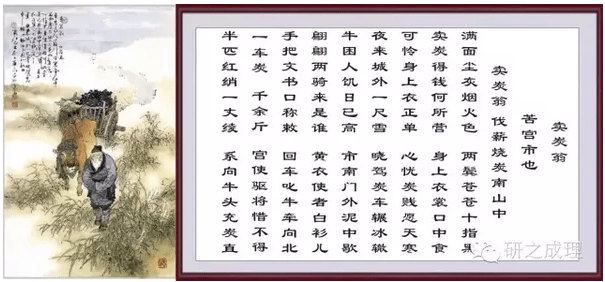 卖炭翁
苦宫市也
卖炭翁 伐薪烧炭南山中
满面尘灰烟火色 两鬓苍苍十指黑
卖炭得钱何所营 身上衣裳口中食
可怜身上衣正单 心忧炭贱愿天寒
夜来城外一尺雪 晓驾炭车辗冰辙
牛困人饥日已高 市南门外泥中歇
翩翩两骑来是谁 黄衣使者白衫儿
手把文书口称敕 回车叱牛牵向北
一车炭 千余斤 宫使驱将惜不得
半匹红绡一丈绫 系向牛头充炭直
研之成理